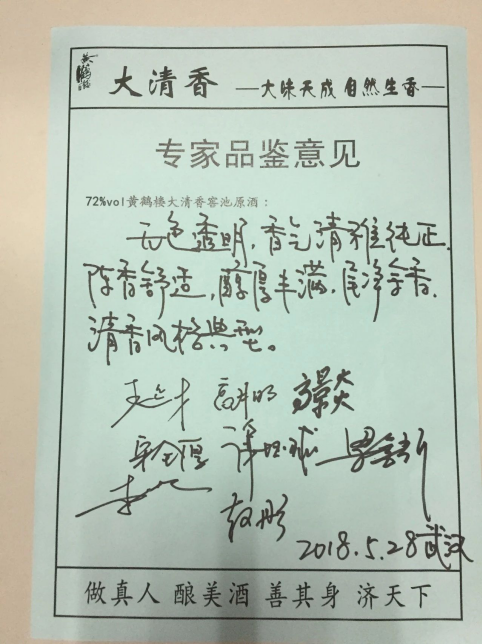 黄鹤楼
大清香 —大味天成 自然生香—
专家品鉴意见
72%vol黄鹤楼大清香窖池原酒：
无色透明，香气清雅纯正，
陈香舒适，醇厚丰满，尾净余香，
清香风格典型。
高景炎
2018.5.28武汉
做真人 酿美酒 善其身 济天下